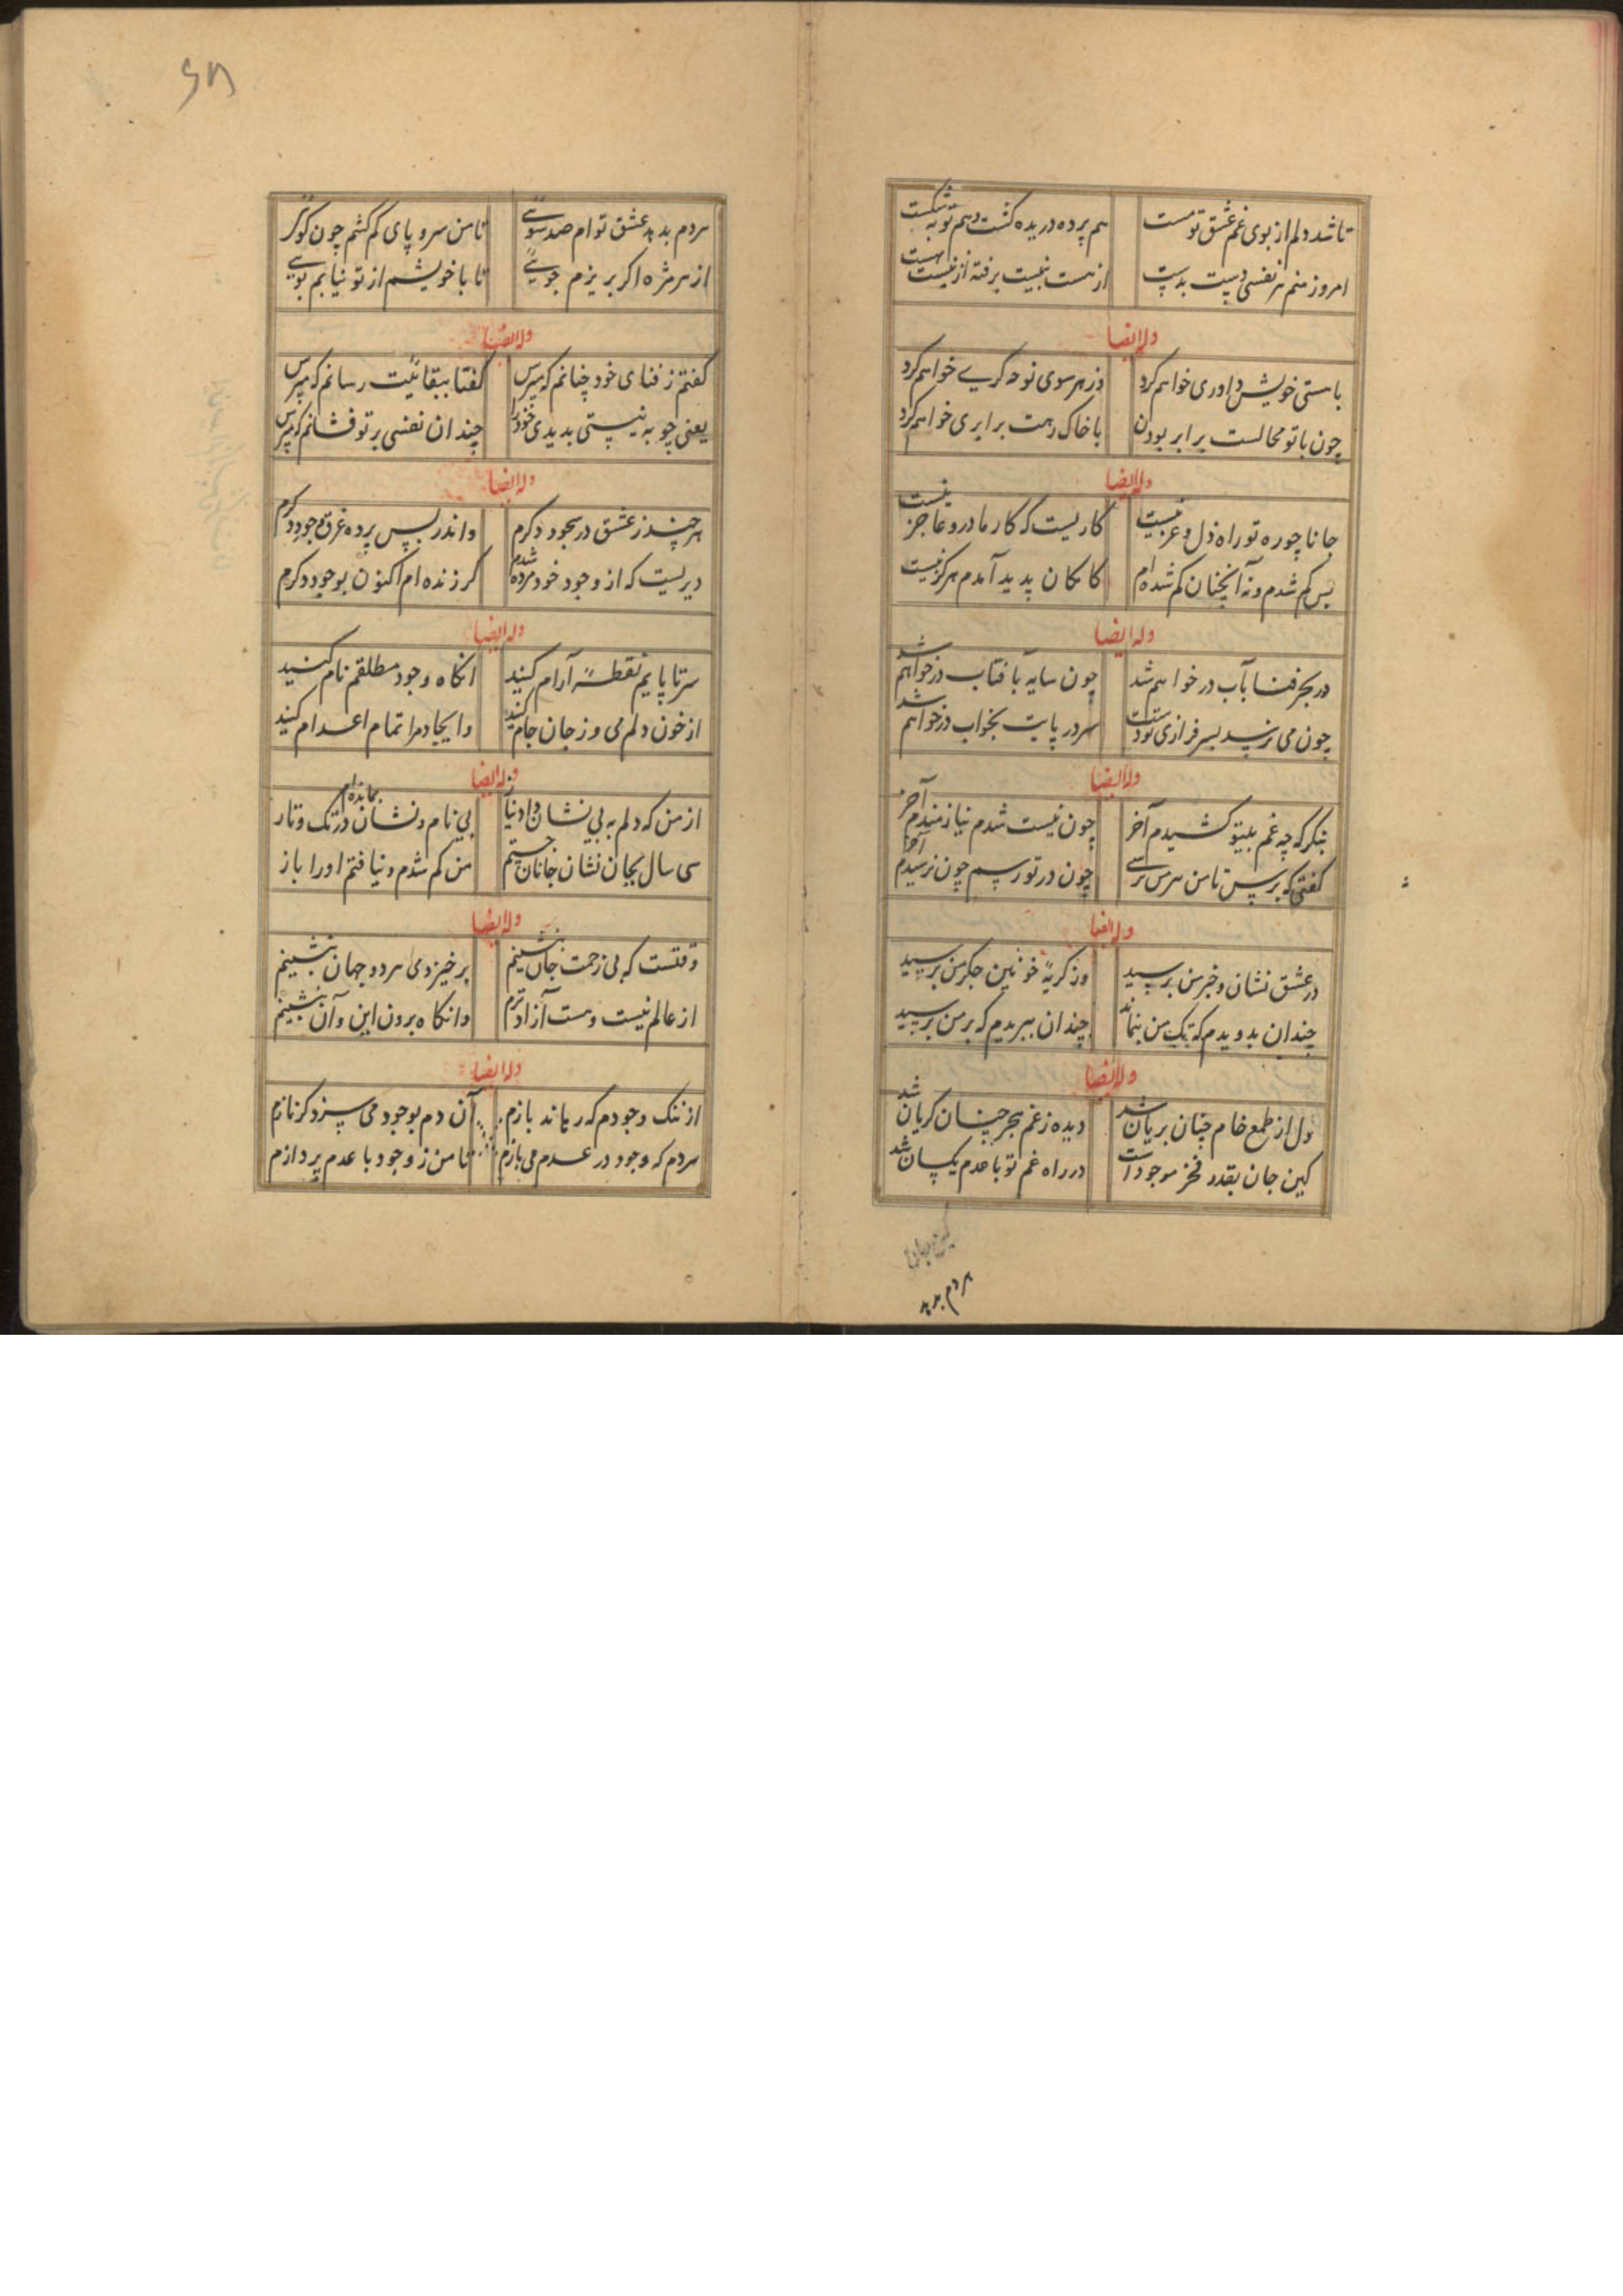 تا شد دلم از بوی غم عشق تو مست
هم پرده دریده گشت و هم توبه شکست
امروز منم هر نفسی دست بدست
از هست بنیست رفته از نیست بهست
وله ایضا
با هستی خویش داوری خواهم کرد
وز هر سوی نوحه گری خواهم کرد
چون با تو محالست برابر بودن
با خاک رهت برابری خواهم کرد
وله ایضا
جانا چو ره تو راه ذل و عز نیست
کاریست که کار ما درو عاجز نیست
پس گم شدم و نه آنچنان گم شده‌ام
کامکان پدید آمدم هرگز نیست
وله ایضا
در بحر فنا بآب در خواهم شد
چون سایه بآفتاب در خواهم شد
چون می نرسد بسر فرازی تو دست
سر در پایت بخواب در خواهم شد
وله ایضا
بنگر که چه غم بیتو کشیدم آخر
چون نیست شدم نیازمندم آخر
گفتی که برس تا من هرس ترسی
چون در تو رسم چون نرسیدم آخر
وله ایضا
در عشق نشان و خبر من برسید
وز گریهٔ خونین جگر من برسید
چندان بدویدم که تک من بنماند
چندان بپریدم که پر من برسید
وله ایضا
دل از طمع خام چنان بریان شد
دیده ز غم هجر چنان گریان شد
کین جان بقدر فخر موجودات
در راه غم تو با عدم یکسان شد
هر دم بدید
هر دم بدید عشق توام صد سوئی
تا من سر و پای گم کنم چون گوئی
از هر مژه اگر بریزم جوئی
تا با خویشم از تو نیابم بوئی
وله ایضا
گفتم ز فنای خود چنانم که مپرس
گفتا ببقائیت رسانم که مپرس
یعنی چو به نیستی بدیدی خود را
چندان نفسی بر تو فشانم که مپرس
وله ایضا
هر چند ز عشق در سجود دگرم
واندر پس پرده غرق جود دگرم
دیریست که از وجود خود مرده شدم
گر زنده‌ام اکنون بوجود دگرم
وله ایضا
سر تا پایم نقطهٔ آرام کنید
آنگاه وجود مطلقم نام کنید
از خون دلم می و ز جان جام کنید
وایجاد مرا تمام اعدام کنید
وله ایضا
از من که دلم به بی نشان داد نیاز
بی نام و نشان در تک و تاز بمانده‌ام
سی سال بجان نشان جانان جستم
من گم شدم و نیافتم او را باز
وله ایضا
وقتست که بی زحمت جان بنشینم
برخیزم می هر دو جهان بنشینم
از عالم نیست و هست آزاد ترم
وانگاه برون این و آن بنشینم
وله ایضا
از ننگ وجودم که رهاند بازم
آن دم بوجود می سزد گر نازم
هر دم که وجود در عدم می بازم
تا من ز وجود با عدم پردازم